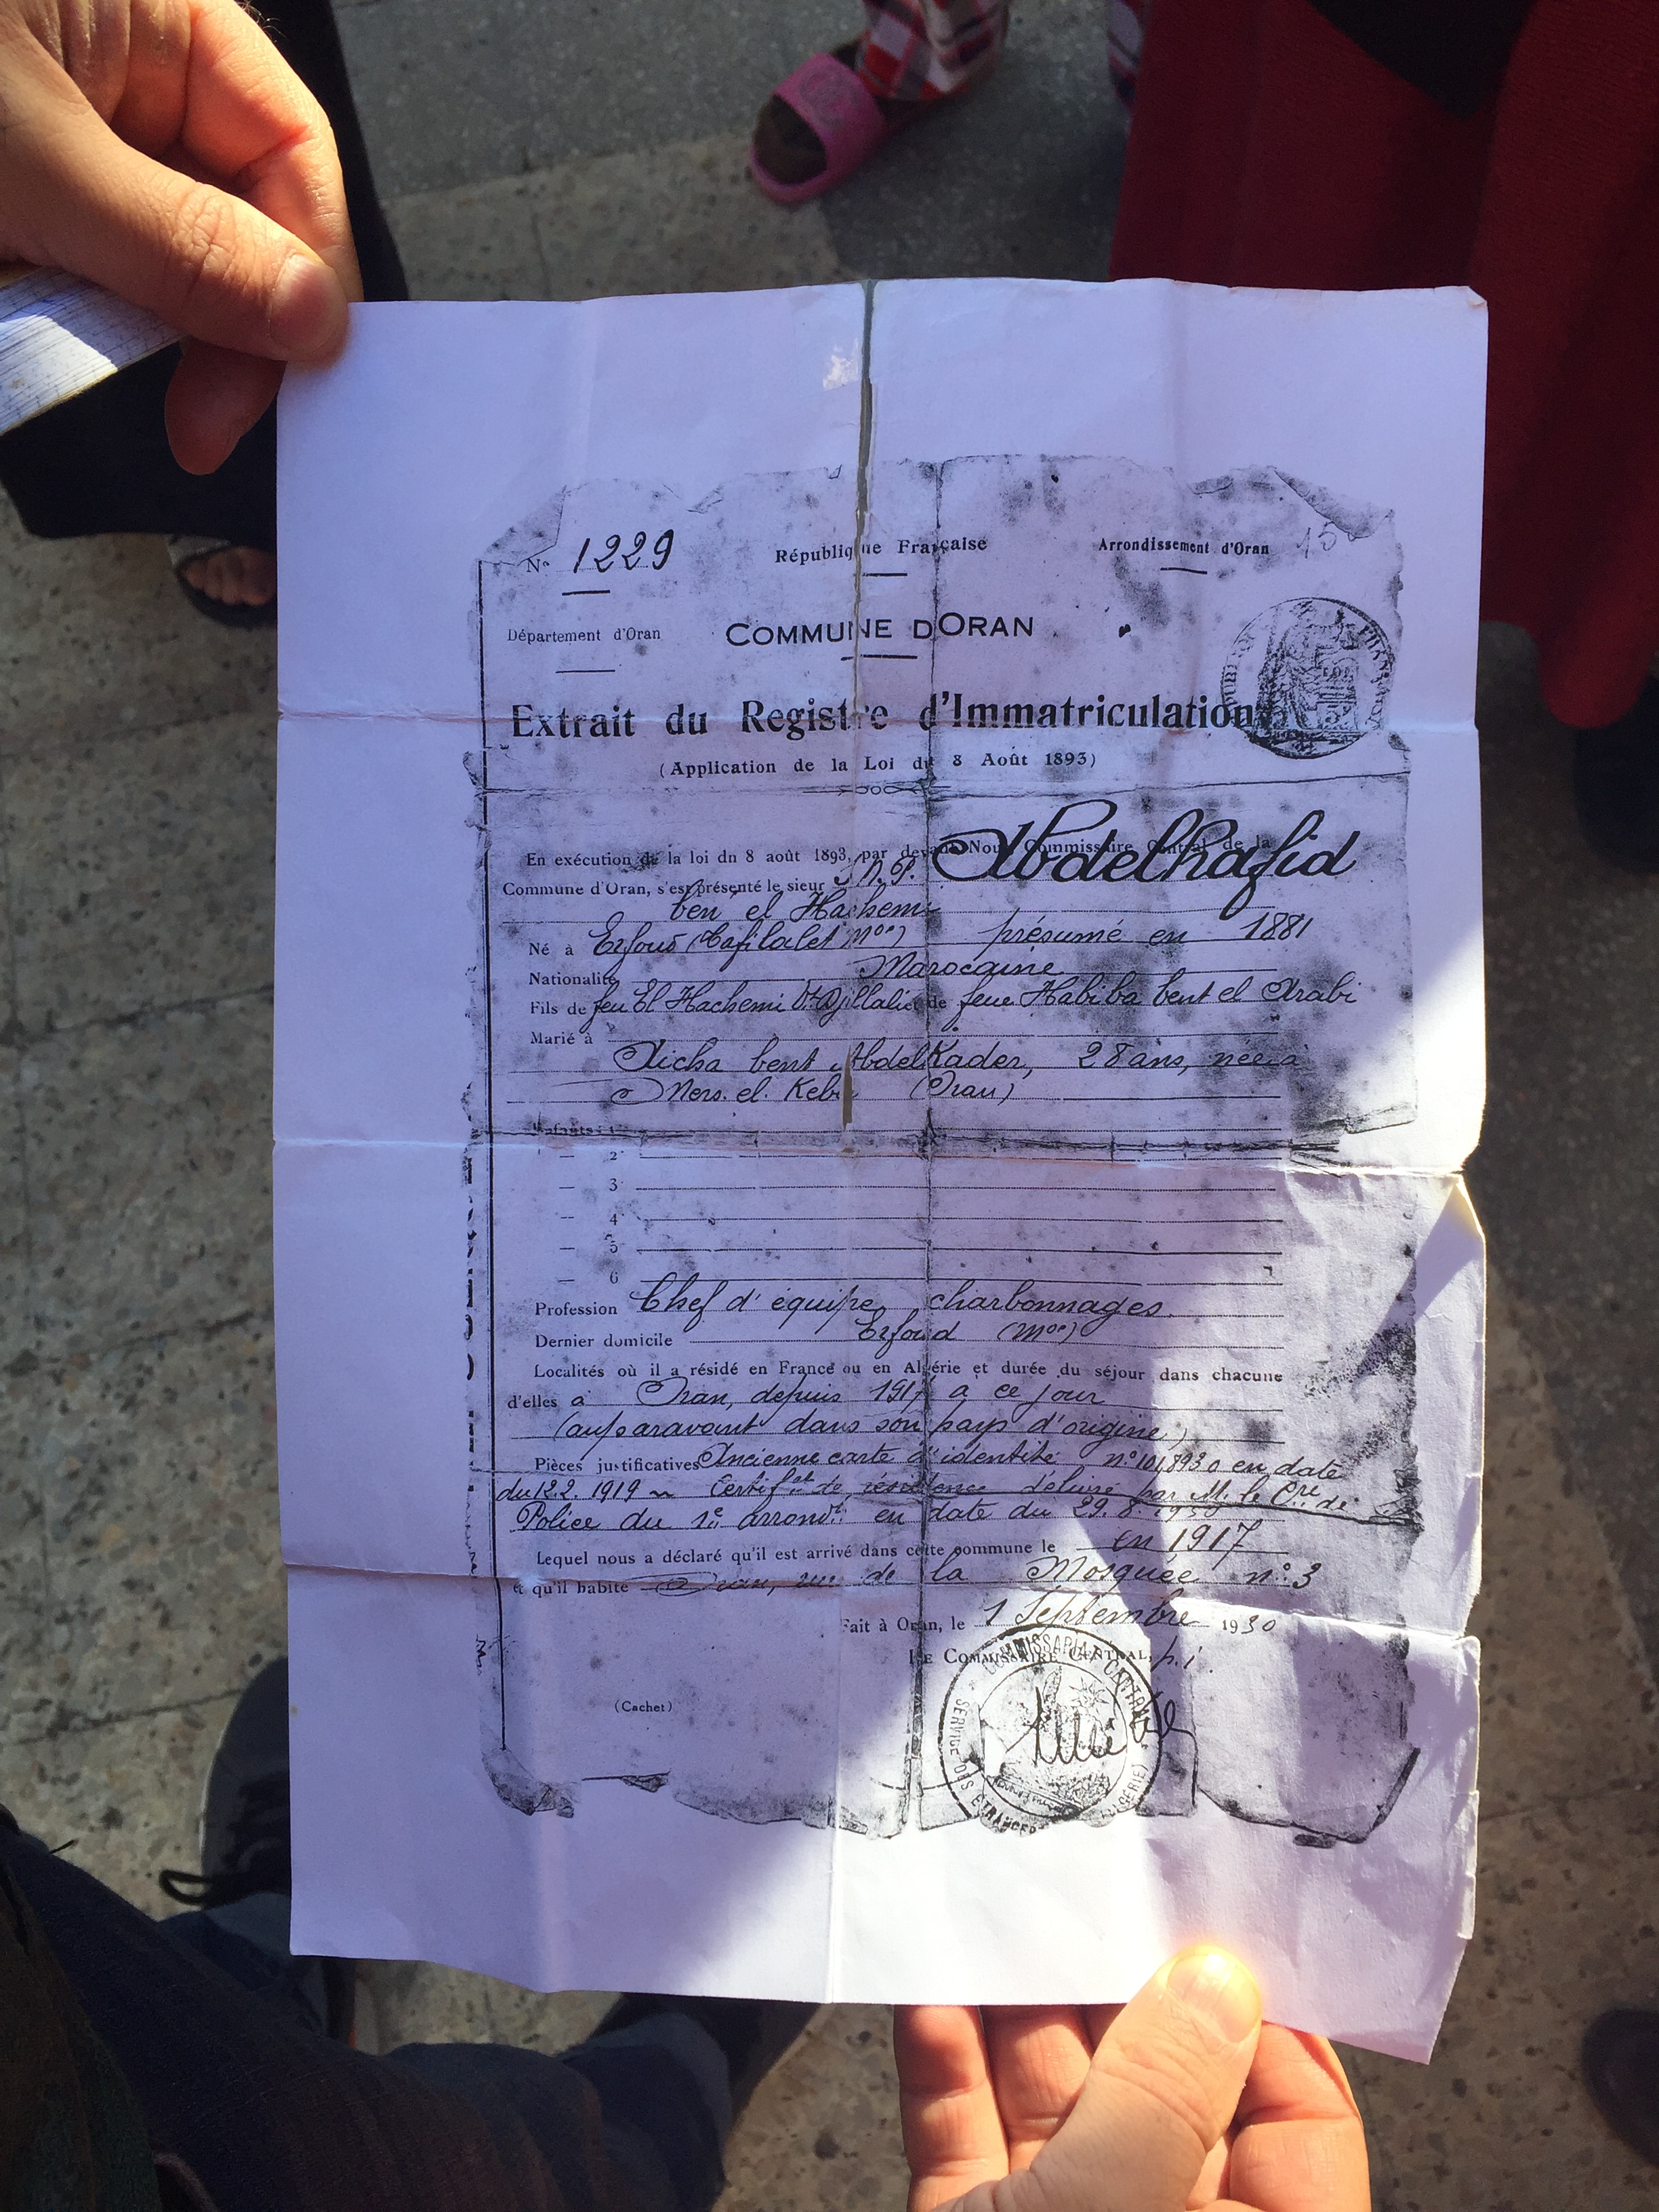 N° 1229
République Française
Arrondissement d'Oran
Département d'Oran
COMMUNE D'ORAN
Extrait du Registre d'Immatriculation
(Application de la Loi du 8 Août 1893)
En exécution de la loi dn 8 août 1893, par devant Nous Commissaire Central de la
Commune d'Oran, s'est présenté le sieur S.N.P. Abdelhafid
ben el Hachemi
Né à Erfoud (Tafilalet Moc) présumé en 1881
Nationalité Marocaine
Fils de feu El Hachemi Djillali et de feue Habiba bent el Arabi
Marié à
Aicha bent Abdelkader, 28 ans, née à
Mers. el. Kebir (Oran)
Enfants : 1
— 2
— 3
— 4
— 5
— 6
Profession Chef d'équipe, charbonnages.
Dernier domicile Erfoud (Moc)
Localités où il a résidé en France ou en Algérie et durée du séjour dans chacune
d'elles à Oran, depuis 1917 à ce jour
(auparavant dans son pays d'origine)
Pièces justificatives Ancienne carte d'identité n° 101,893 en date
du 12.2. 1919 ~ Certif.at de résidence délivré par M. le Cre de
Police du 1er arrondt en date du 29.8.1930
Lequel nous a déclaré qu'il est arrivé dans cette commune le en 1917
et qu'il habite Oran, rue de la Mosquée n° 3
Fait à Oran, le 1 Septembre 1930
LE COMMISSAIRE CENTRAL, p.i.
COMMISSARIAT CENTRAL
SERVICE DES ETRANGERS
(ALGERIE)
(Cachet)